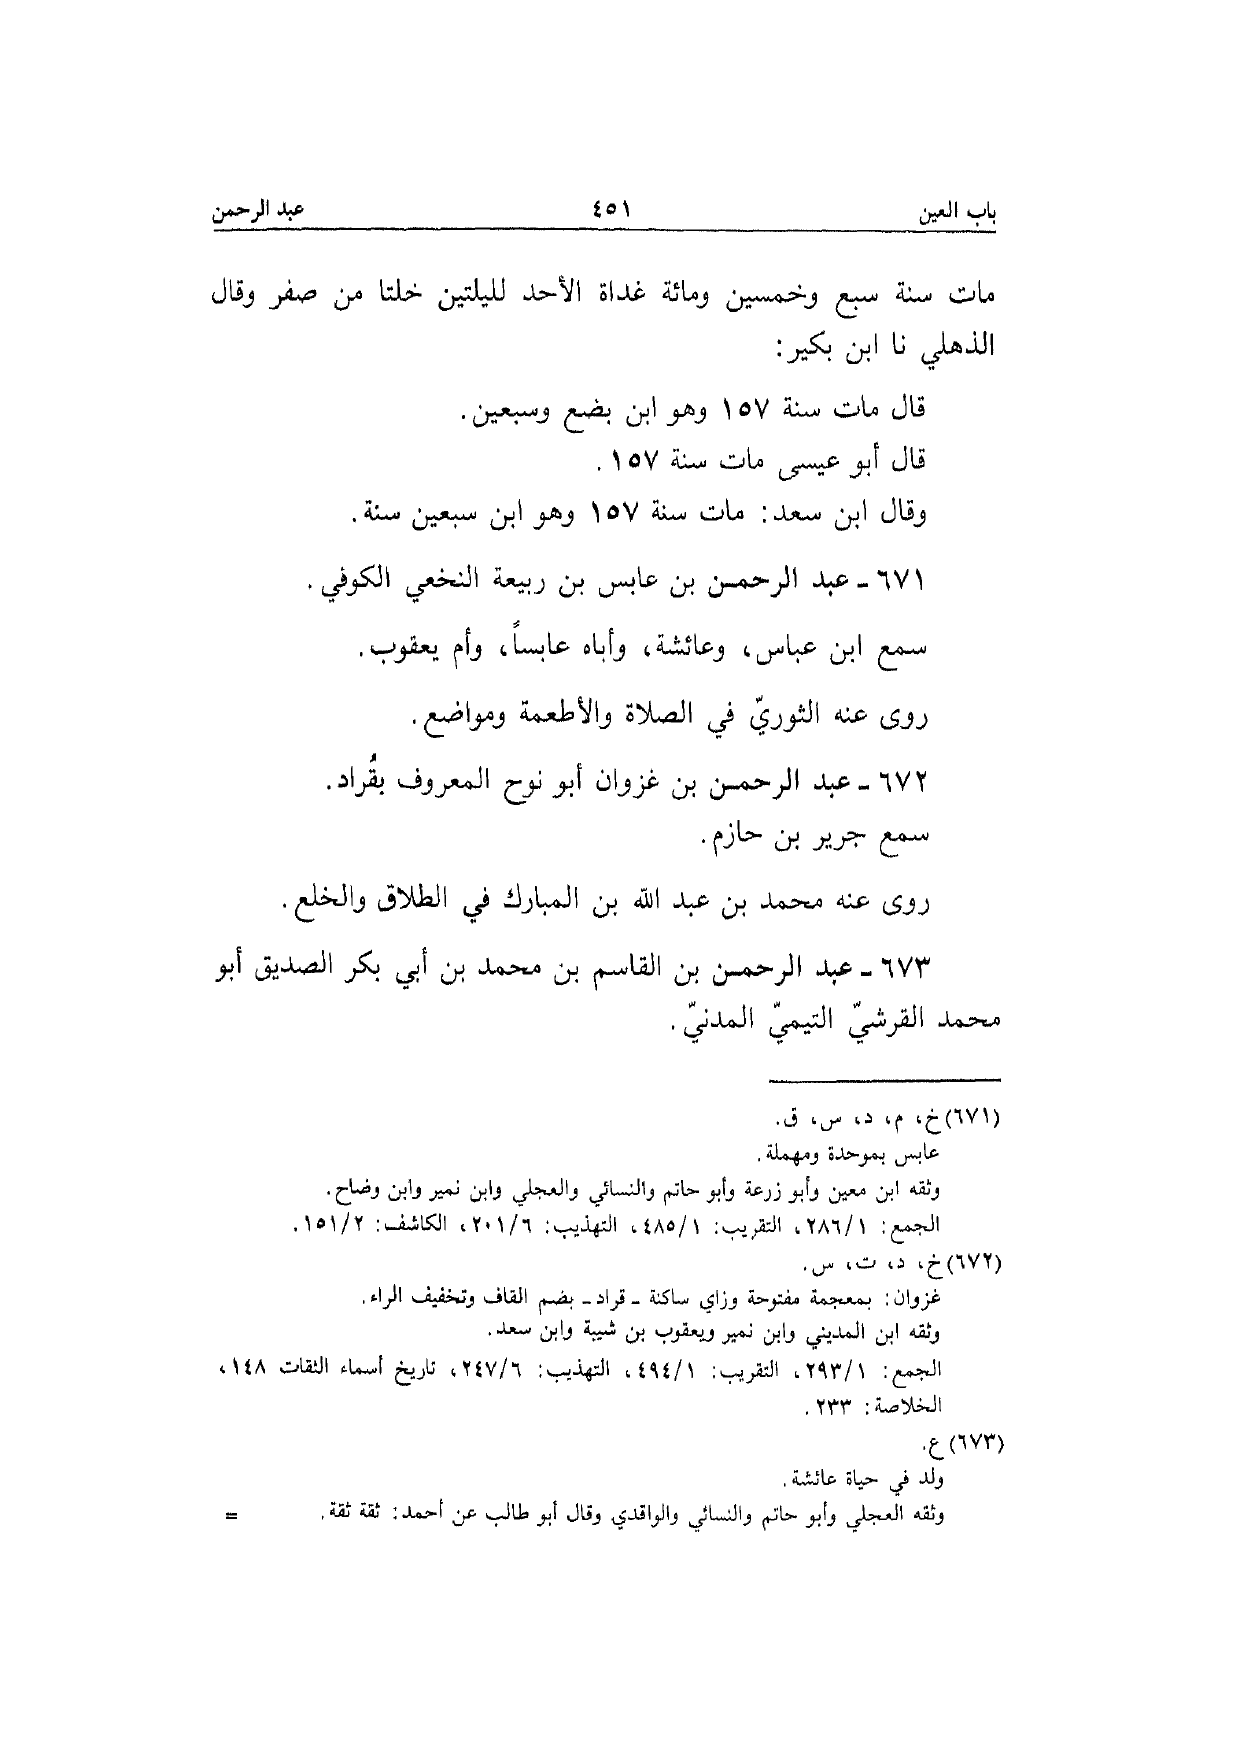 باب العين ٤٥١ عبد الرحمن
مات سنة سبع وخمسين ومائة غداة الأحد لليلتين خلتا من صفر وقال
الذهلي نا ابن بكير:
قال مات سنة ١٥٧ وهو ابن بضع وسبعين.
قال أبو عيسى مات سنة ١٥٧.
وقال ابن سعد: مات سنة ١٥٧ وهو ابن سبعين سنة.
٦٧١ ـ عبد الرحمن بن عابس بن ربيعة النخعي الكوفي.
سمع ابن عباس، وعائشة، وأباه عابساً، وأم يعقوب.
روى عنه الثوريّ في الصلاة والأطعمة ومواضع.
٦٧٢ ـ عبد الرحمن بن غزوان أبو نوح المعروف بقُراد.
سمع جرير بن حازم.
روى عنه محمد بن عبد الله بن المبارك في الطلاق والخلع.
٦٧٣ ـ عبد الرحمن بن القاسم بن محمد بن أبي بكر الصديق أبو
محمد القرشيّ التيميّ المدنيّ.
(٦٧١) خ، م، د، س، ق.
عابس بموحدة ومهملة.
وثقه ابن معين وأبو زرعة وأبو حاتم والنسائي والعجلي وابن نمير وابن وضاح.
الجمع: ٢٨٦/١، التقريب: ٤٨٥/١، التهذيب: ٢٠١/٦، الكاشف: ١٥١/٢.
(٦٧٢) خ، د، ت، س.
غزوان: بمعجمة مفتوحة وزاي ساكنة ـ قراد ـ بضم القاف وتخفيف الراء.
وثقه ابن المديني وابن نمير ويعقوب بن شيبة وابن سعد.
الجمع: ٢٩٣/١، التقريب: ٤٩٤/١، التهذيب: ٢٤٧/٦، تاريخ أسماء الثقات ١٤٨،
الخلاصة: ٢٣٣.
(٦٧٣) ع.
ولد في حياة عائشة.
وثقه العجلي وأبو حاتم والنسائي والواقدي وقال أبو طالب عن أحمد: ثقة ثقة. =